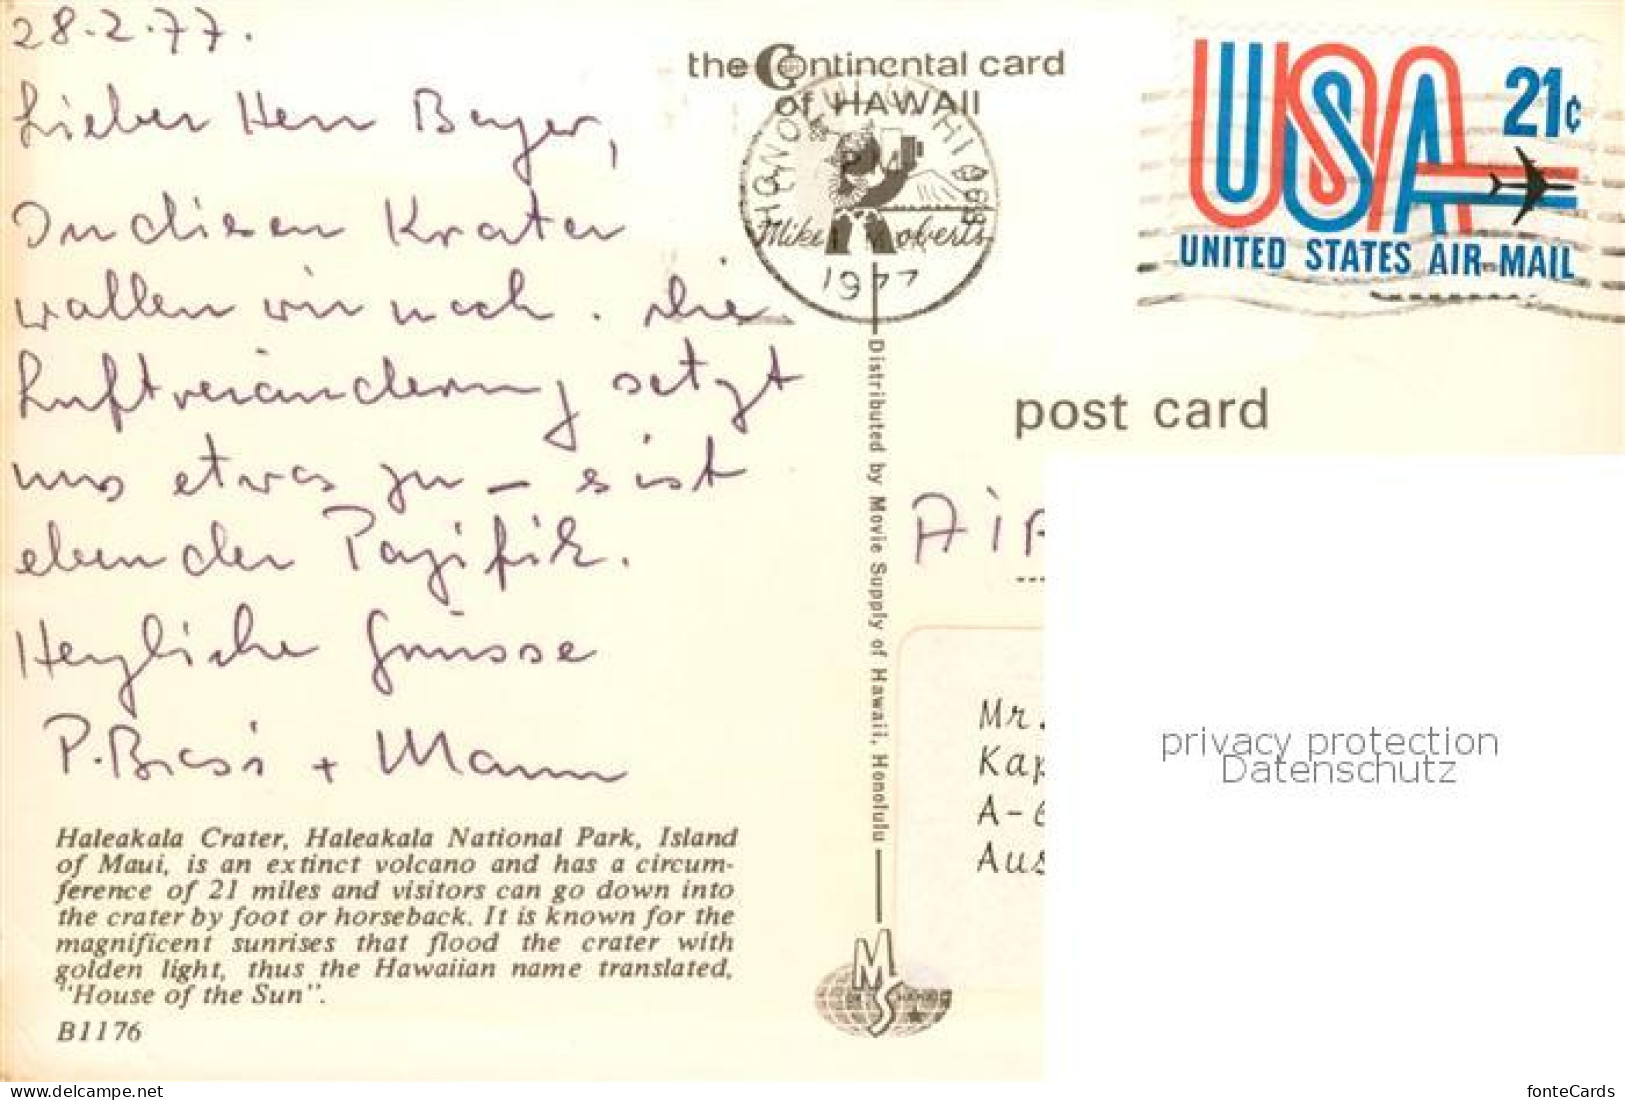 28.2.77.
Lieber Herr Berger,
In diesen Krater
wollen wir noch. Die
Luftveränderung setzt
uns etwas zu – es ist
eben der Pazifik.
Herzliche Grüsse
P. + Mann
Haleakala Crater, Haleakala National Park, Island
of Maui, is an extinct volcano and has a circum-
ference of 21 miles and visitors can go down into
the crater by foot or horseback. It is known for the
magnificent sunrises that flood the crater with
golden light, thus the Hawaiian name translated,
"House of the Sun".
B1176
the Continental card
of HAWAII
HONOLULU HI 968
PM
Mike Roberts
1977
Distributed by Movie Supply of Hawaii, Honolulu
MS
USA 21c
UNITED STATES AIR MAIL
post card
AIR
Mr.
Kap
A-6
Aus
privacy protection
Datenschutz
www.ak-ansichtskarten.de
fonteCards